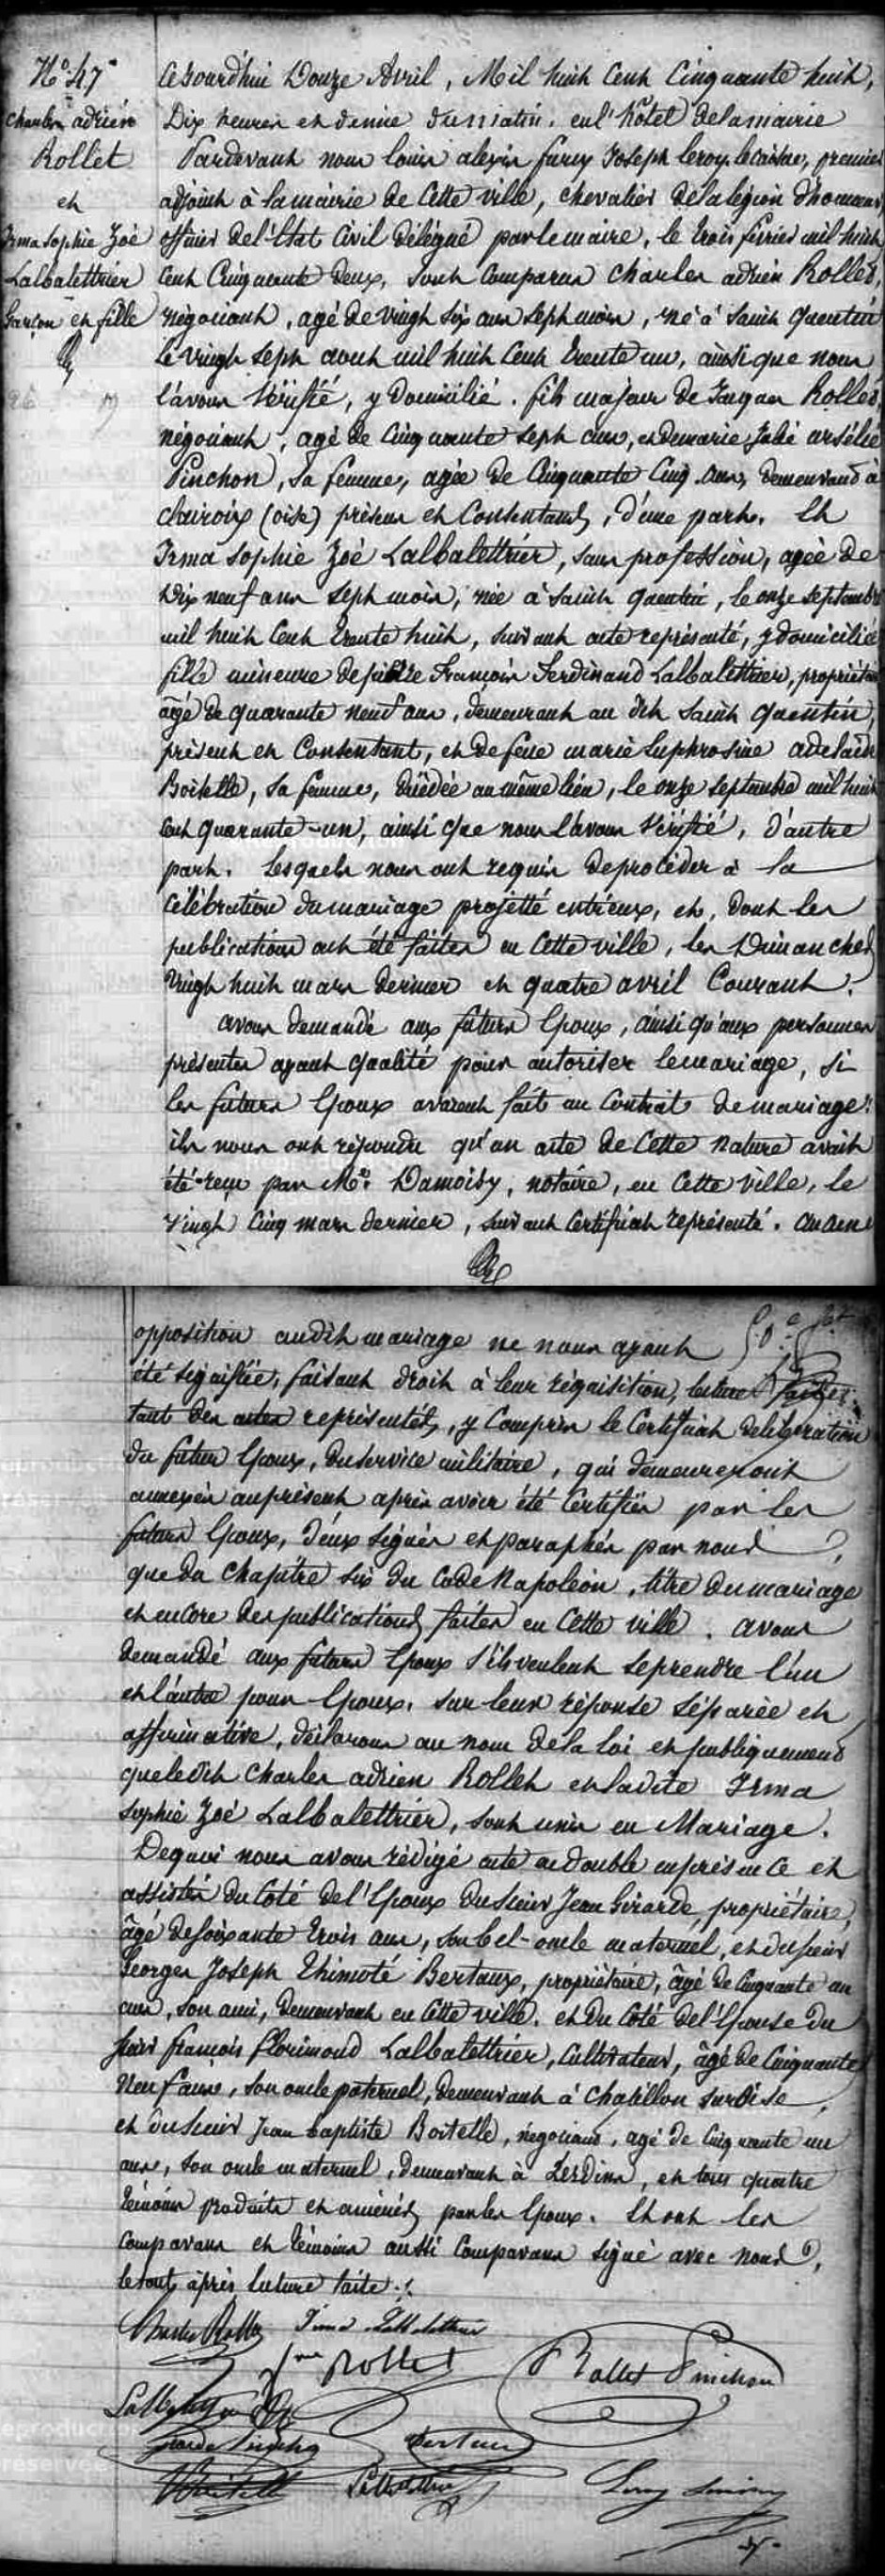 N° 47
Charles adrien
Rollet
et
Irma Sophie Zoé
Lalbalettrier
Garçon et fille
Cejourd'hui Douze Avril, Mil huit Cent Cinquante huit,
Dix heures et demie du matin. en l'hôtel de la mairie
Pardevant nous louis alexis furcy Joseph leroy, premier
adjoint à la mairie de Cette ville, chevalier de la légion d'honneur,
officier de l'Etat Civil délégué par le maire, le trois février mil huit
Cent Cinquante Deux, sont Comparus Charles adrien Rollet,
négociant, agé de vingt six ans sept mois, né à Saint quentin
le vingt sept aout mil huit Cent trente un, ainsi que nous
l'avons vérifié, y domicilié. fils majeur de Jacques Rollet,
négociant, agé de Cinquante sept ans, et de marie Julie arsélie
Pinchon, sa femme, agée de Cinquante Cinq ans, demeurand à
clairoix (oise) présens et Consentants, d'une part. Et
Irma Sophie Zoé Lalbalettrier, sans profession, agée de
dix neuf ans sept mois, née à Saint quentin, le onze septembre
mil huit Cent trente huit, suivant acte représenté, y domiciliée
fille mineure de pierre François Ferdinand Lalbalettrier, propriétaire
âgé de quarante neuf ans, demeurant au dit Saint quentin,
présent et Consentant, et de feue marie Euphrosine adelaïde
Boitelle, sa femme, décédée au même lieu, le onze septembre mil huit
cent quarante-un, ainsi que nous l'avons vérifié, d'autre
part. Lesquels nous ont requis de procéder à la
Célébration du mariage projetté entr'eux, et, dont les
publications ont été faites en Cette ville, les Dimanches
vingt huit mars dernier et quatre avril Courant.
avons demandé aux futurs Epoux, ainsi qu'aux personnes
présentes ayant qualité pour autoriser le mariage, si
les futurs Epoux avaient fait un Contrat de mariage:
ils nous ont répondu qu'un acte de Cette nature avait
été reçu par Me. Damoisy, notaire, en Cette ville, le
vingt Cinq mars dernier, suivant Certificat représenté. aucune
opposition audit mariage ne nous ayant
été signifiée, faisant droit à leur réquisition, lecture faite
tant des actes représentés, y Compris le Certificat de libération
du futur Epoux, du service militaire, qui demeureront
annexés au présent après avoir été Certifiés par les
futurs Epoux, d'eux signés et paraphés par nous,
que du Chapitre six du Code Napoléon, titre du mariage
et encore des publications faites en Cette ville. avons
demandé aux futurs Epoux s'ils veulent se prendre l'un
et l'autre pour Epoux. sur leur réponse séparée et
affirmative, déclarons au nom de la loi et publiquement
que ledit Charles adrien Rollet et ladite Irma
Sophie Zoé Lalbalettrier, sont unis en Mariage.
De quoi nous avons rédigé acte en double en présence et
assistés du Coté de l'Epoux du Sieur Jean Girarde, propriétaire,
âgé de soixante trois ans, son bel-oncle maternel, et du sieur
Georges Joseph Thimoté Bertaux, propriétaire, âgé de Cinquante un
ans, son ami, demeurant en Cette ville. et du Coté de l'Epouse du
sieur françois florimond Lalbalettrier, Cultivateur, âgé de Cinquante
Neuf ans, son oncle paternel, demeurant à Chatillon sur Oise
et du Sieur Jean baptiste Boitelle, négociant, agé de Cinquante un
ans, son oncle maternel, demeurant à Lesdins, et tous quatre
témoins produits et amenés par les Epoux. Et ont les
Comparans et témoins aussi Comparans signé avec nous,
le tout après lecture faite.
Charles Rollet Irma Lalbalettrier
Jques Rollet Rollet Pinchon
Lalbalettrier
Girarde Pinchon Bertaux
Boitelle Lalbalettrier Leroy